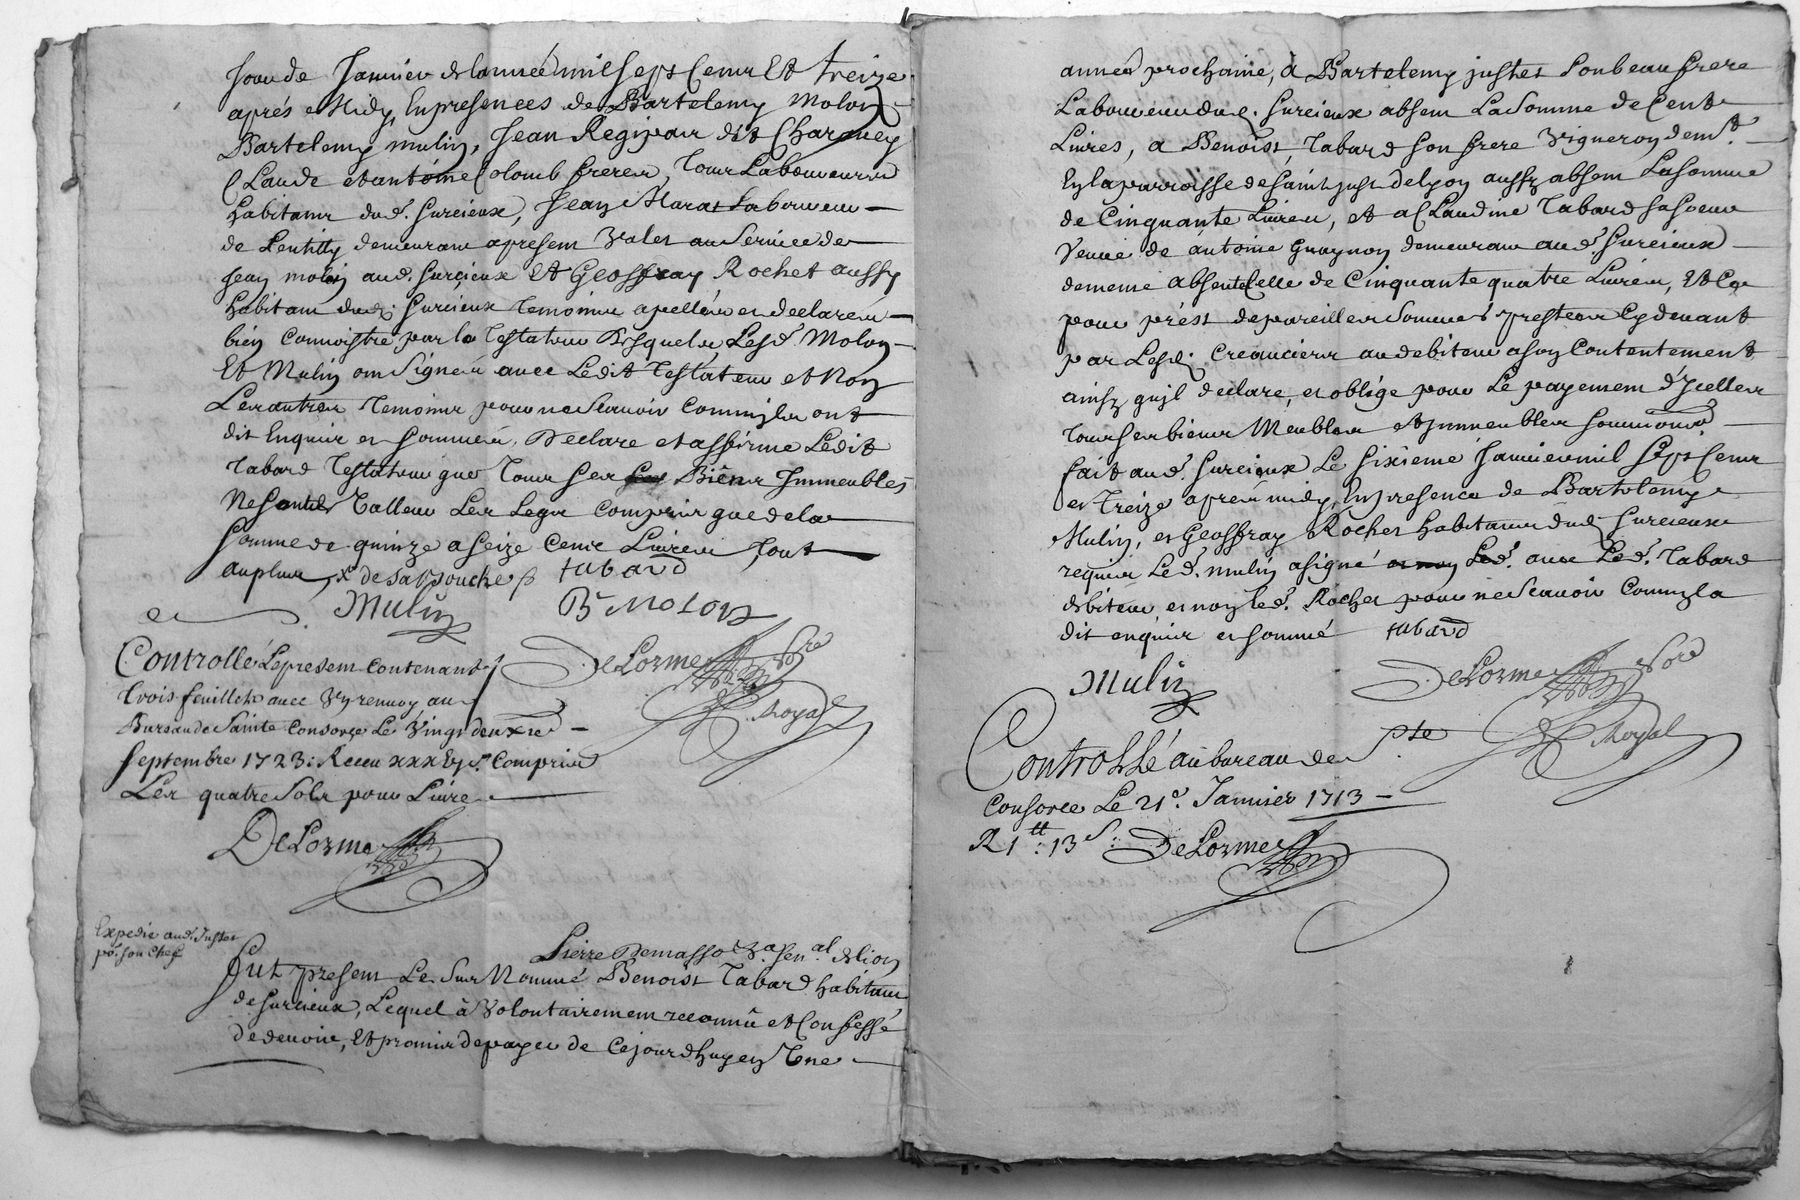 Jour de Janvier de lannée mil sept Cent Et treize
aprés Midy, En presences de Bartelemy Molon
Bartelemy mulin, Jean Régipar dit Charguey
Claude et antoine Colomb freres, Tous Laboureurs
habitants dud. Surcieux, Jean Maras Laboureur
de Lentilly demeurant apresent Valet au Service de
Jean molin aud. Surcieux Et Geoffray Rochet aussy
habitant dud. Surcieux temoins apellés et declarés
bien Connoistre par le Testateur Desquels, Lesd. Molon
Et Mulin ont Signés avec Ledit Testateur et Non
Les autres temoins pour ne Scavoir Commils ont
dit Enquis et sommés, Declare et affirme Ledit
Tabard Testateur que Tous Ses Biens Immeubles
Ne sont de Valleur Les Legs Compris que de la
Somme de quinze a seize Cent Livres Tout
au plus, de sa bouche tabard
et Mulin B Molon
Controllé Le present Contenant DeLorme Nore
trois feuillets avec Un renvoy au Royal
Bureau de Sainte Consorce Le Vingt deuxie
Septembre 1723: Receu Compris
Les quatre Sols pour Livre
DeLorme
Expedie aud. Justes
po. son chef
Pierre Demasso sen.al de lion
Fut present Le Sus Nommé Benoist Tabard habitant
de Surcieux, Lequel à Volontairement reconnû et Confessé
de devoir, Et promis de payer de Cejourdhuy en Une
année prochaine, à Bartelemy justes Son beau frere
Laboureur dud. Surcieux absent La Somme de Cent
Livres, a Benoist Tabard son frere Vigneron demt.
En la parroisse de Saint just de Lyon aussy absent La Somme
de Cinquante Livres, et a Claudine Tabard sa soeur
Veuve de antoine Guaynon demeurant aud. Surcieux
de meme absente Celle de Cinquante quatre Livres, Et Ce
pour prést de pareilles Sommes prestées Cy devant
par Lesd. Creanciers au debiteur a son Contentement
ainsy quil declare, et oblige pour Le payement d'Jcelles
tous ses biens Meubles et Immeubles soumions
fait aud. Surcieux Le Sixieme Janvier mil Sept Cent
et Treize aprés midy, En presence de Bartelemy
Mulin, et Geoffray Rochet habitants dud. Surcieux
requis Led. mulin a signé avec Led. Tabard
debiteur et non led. Rochet pour ne Scavoir Comm il a
dit enquis et sommé tabard
Mulin DeLorme Nore
Royal
Controllé au bureau de Ste
Consorce Le 21e. Janvier 1713
R 1tt: 13s: DeLorme